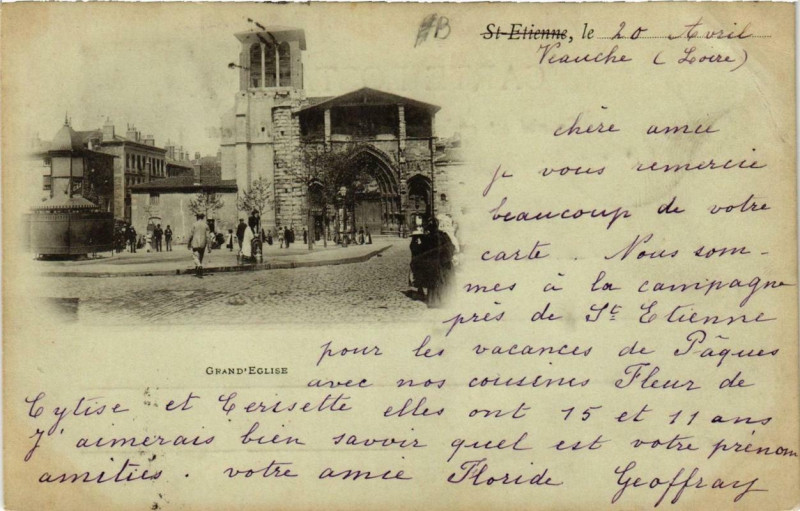 #B
St-Etienne, le 20 Avril
Veauche (Loire)
chère amie
je vous remercie
beaucoup de votre
carte. Nous som-
mes à la campagne
près de St Etienne
pour les vacances de Pâques
GRAND'EGLISE
avec nos cousines Fleur de
Cytise et Cerisette elles ont 15 et 11 ans
J'aimerais bien savoir quel est votre prénom
amitiés. votre amie Floride Geoffray